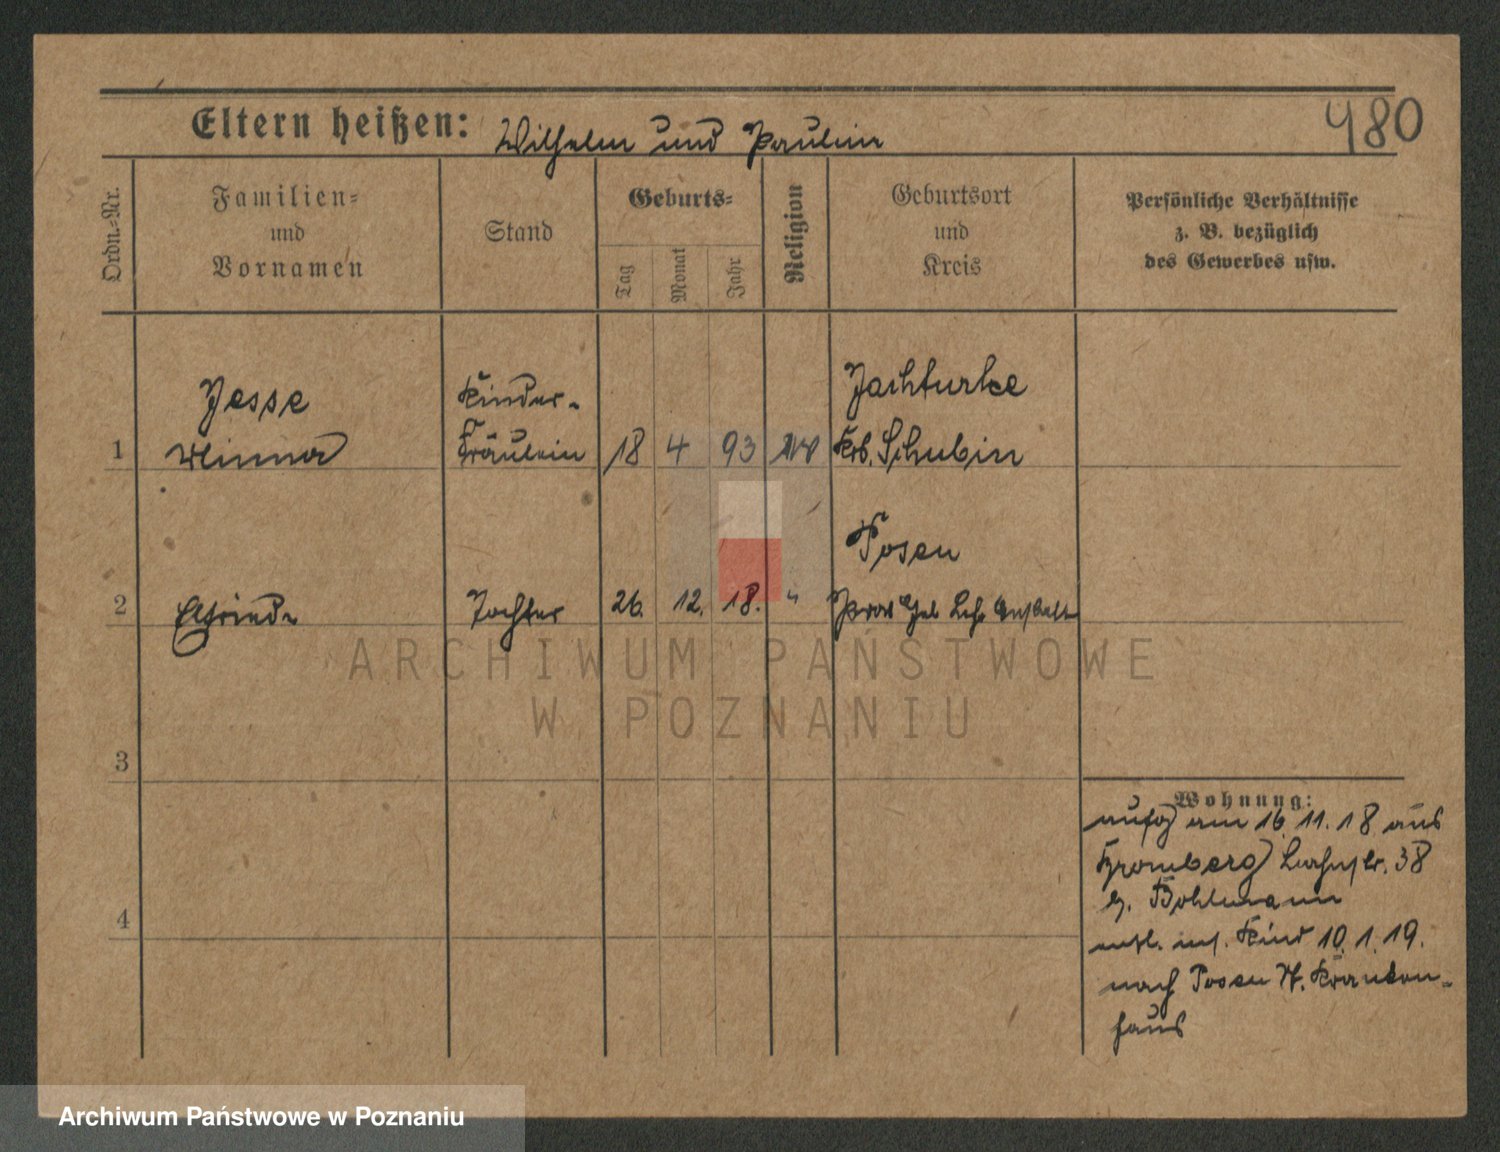 480
Eltern heißen: Wilhelm und Paulin
Ordn.-Nr.
Familien=
und
Vornamen
Stand
Geburts=
Tag
Monat
Jahr
Religion
Geburtsort
und
Kreis
Persönliche Verhältnisse
z. B. bezüglich
des Gewerbes usw.
Jesse
Kinder-
Jachturke
1
Fräulein 18 4 93
Krs. Schubin
Posen
2 Elfriede Tochter 26. 12. 18. "
Prov Heb Lehr Anstalt
ARCHIWUM PAŃSTWOWE
W POZNANIU
3
Wohnung:
am 16. 11. 18 aus
Bromberg 38
b. Bohlmann
entl. m. Kind 10. 1. 19.
nach Posen St. Kranken-
haus
4
Archiwum Państwowe w Poznaniu